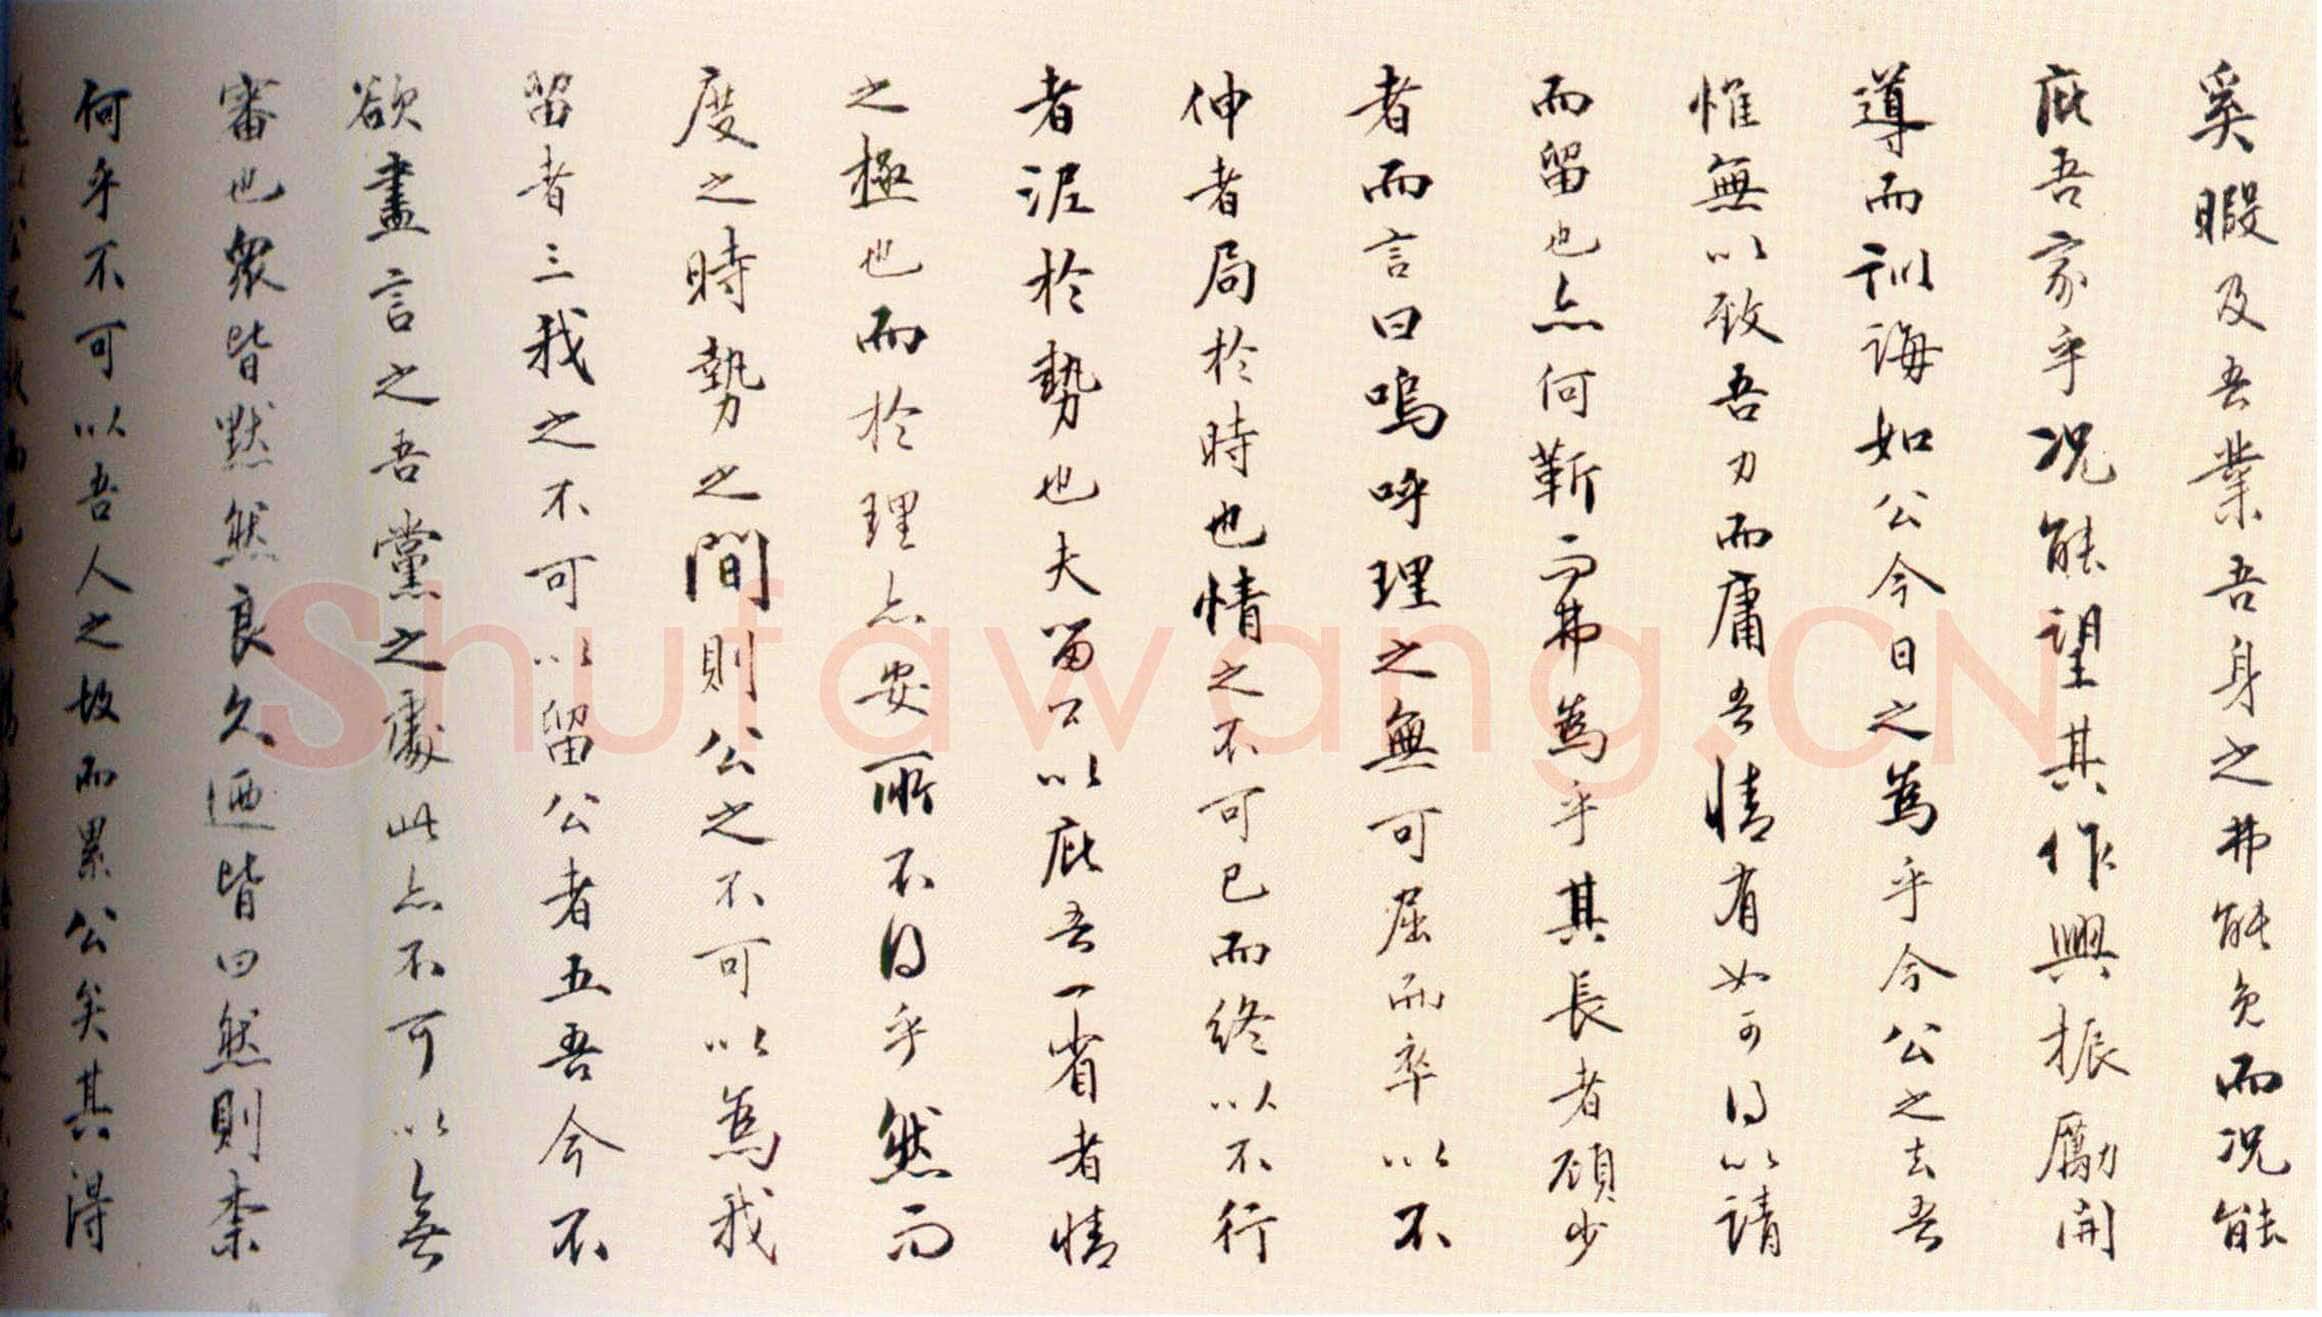 奚暇及吾業吾身之弗能免而况能
庇吾家乎况能望其作興振勵開
導而訓誨如公今日之為乎今公之去吾
惟無以致吾力而庸吾情有如可得以請
而留也亦何靳而弗為乎其長者顧少
者而言曰嗚呼理之無可屈而率以不
伸者局於時也情之不可已而終以不行
者泥於勢也夫留公以庇吾一省者情
之極也而於理亦安所不得乎然而
度之時勢之間則公之不可以為我
留者三我之不可以留公者五吾今不
欲盡言之吾黨之處此亦不可以無
審也眾皆默然良久迺皆曰然則柰
何乎不可以吾人之故而累公矣其得
Shufawang.CN